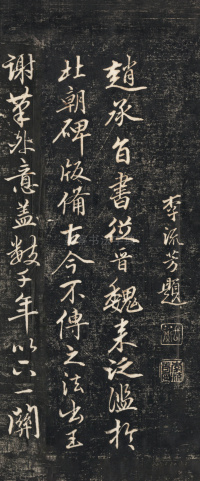 李流芳題
趙承旨書從晉魏来泛濫於
北朝碑版備古今不傳之法出王
謝筆外意蓋數千年以一關